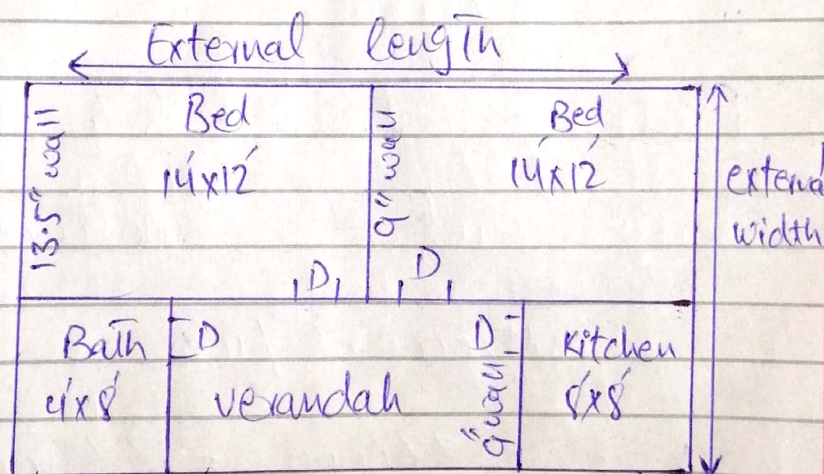 External length
Bed
14'x12'
13.5" wall
9" wall
Bed
14'x12'
external
width
D
D
Bath
4'x8'
D
verandah
D
9" wall
Kitchen
8'x8'